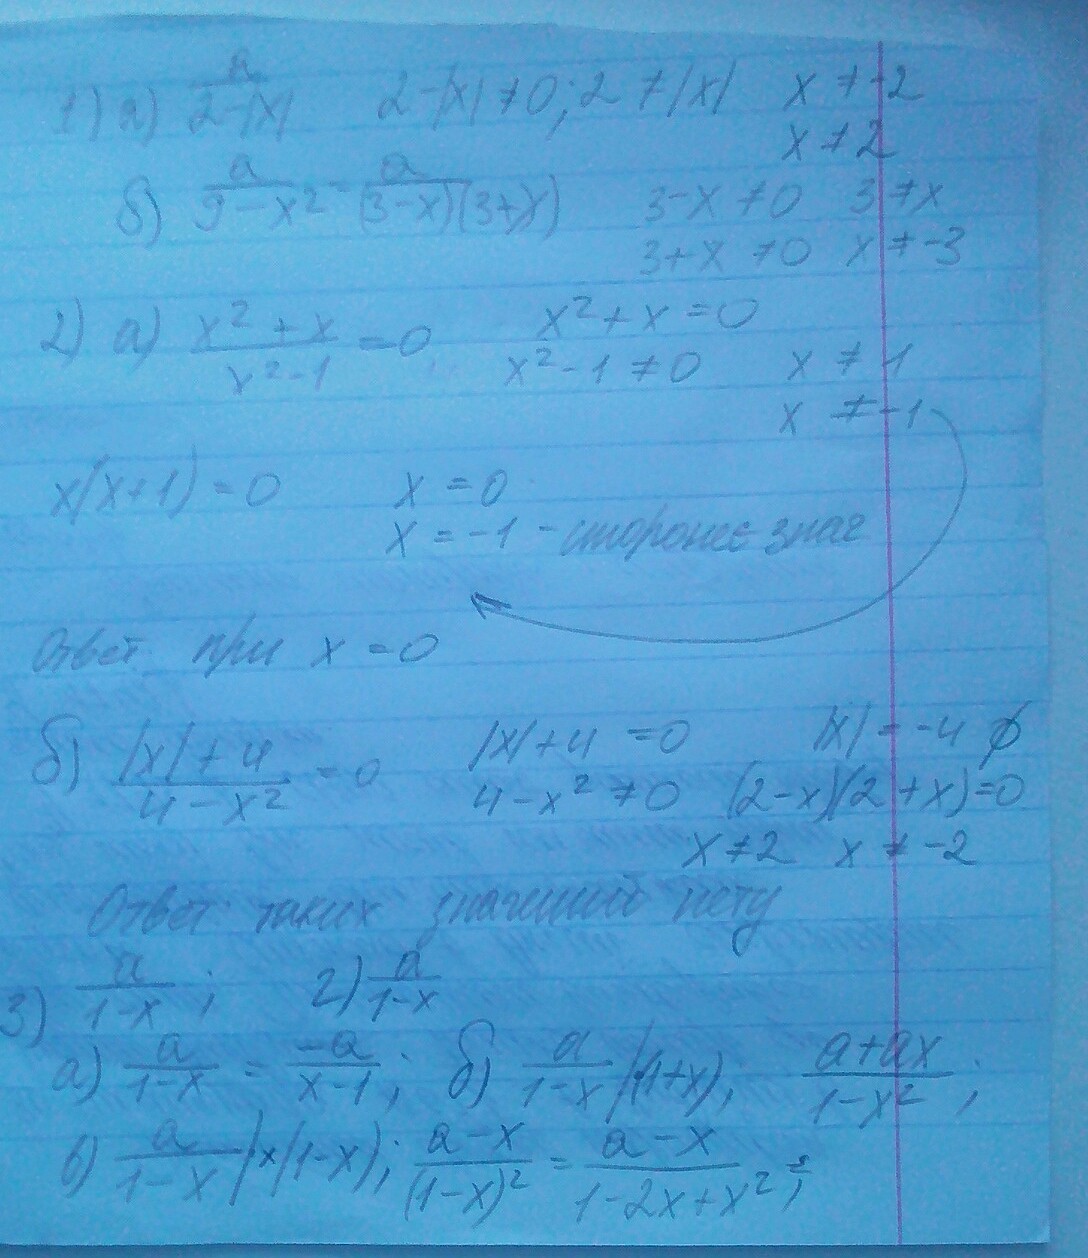 1) а) a/(2-|x|) 2-|x| ≠ 0; 2 ≠ |x| x ≠ -2
x ≠ 2
б) a/(9-x²) = a/((3-x)(3+x)) 3-x ≠ 0 3 ≠ x
3+x ≠ 0 x ≠ -3
2) а) (x²+x)/(x²-1) = 0 x²+x = 0
x²-1 ≠ 0 x ≠ 1
x ≠ -1
x(x+1) = 0 x = 0
x = -1 - сторонее знач
Ответ при x = 0
б) (|x|+4)/(4-x²) = 0 |x|+4 = 0 |x| = -4 ∅
4-x² ≠ 0 (2-x)(2+x)=0
x ≠ 2 x ≠ -2
Ответ таких значиний нету
3) a/(1-x); 2) a/(1-x)
а) a/(1-x) = -a/(x-1); б) a/(1-x) |(1+x); (a+ax)/(1-x²);
в) a/(1-x) |x(1-x); (a-x)/(1-x)² = (a-x)/(1-2x+x²);